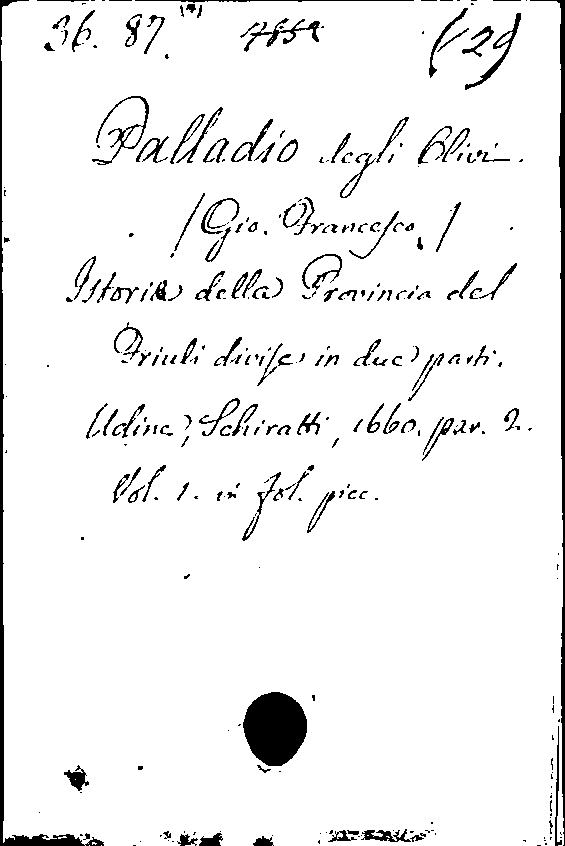 36. 87.
(29)
Palladio degli Olivi.
/Gio. Francesco./
Istoria della Provincia del
Friuli divise in due parti.
Udine, Schiratti, 1660. par. 2.
Vol. 1. in fol. picc.